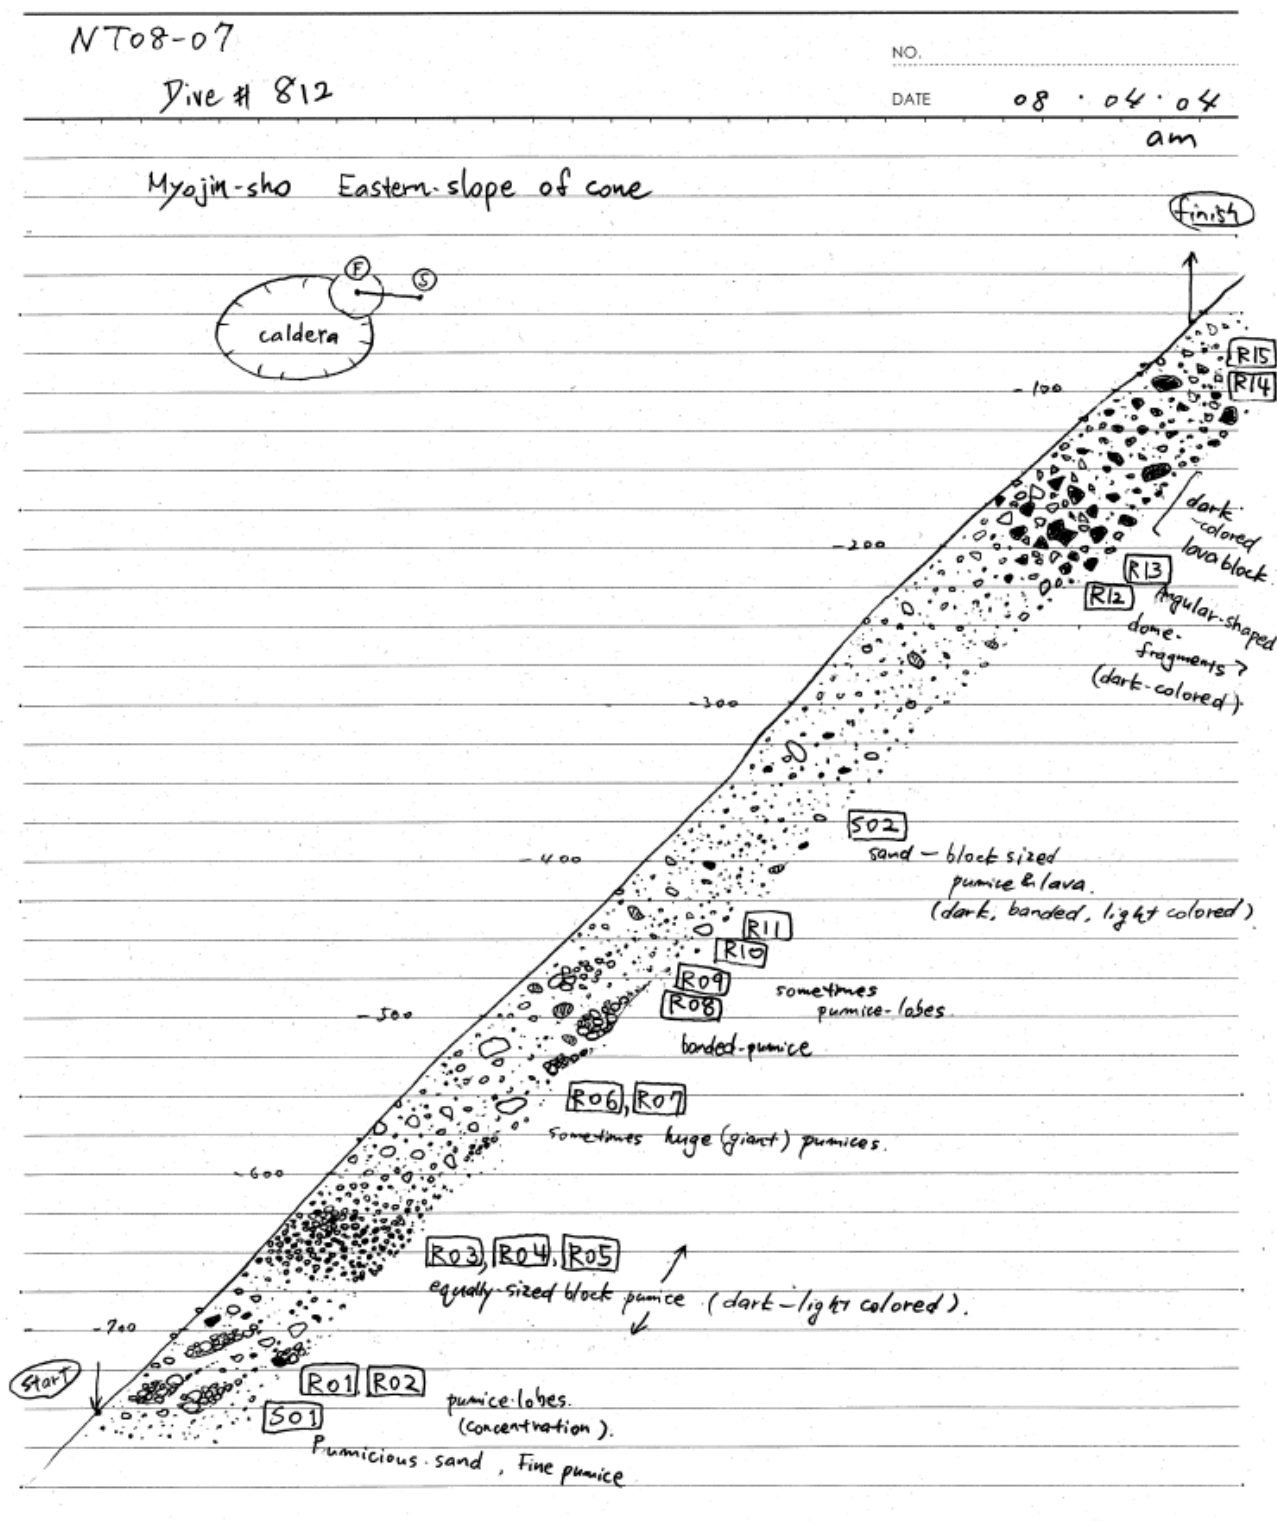 NT08-07
NO.
Dive # 812
DATE 08 · 04 · 04
am
Myojin-sho Eastern-slope of cone
finish
F
S
caldera
R15
R14
-100
dark
-colored
lava block.
-200
R13
R12
Angular-shaped
dome-
fragments
(dark-colored).
-300
S02
sand - block sized
pumice & lava.
(dark, banded, light colored)
-400
R11
R10
R09
R08
sometimes
pumice-lobes.
-500
banded-pumice
R06, R07
sometimes huge (giant) pumices.
-600
R03, R04, R05
equally-sized block pumice (dark-light colored).
-700
start
R01 R02
pumice-lobes.
(concentration).
S01
Pumicious-sand, Fine pumice